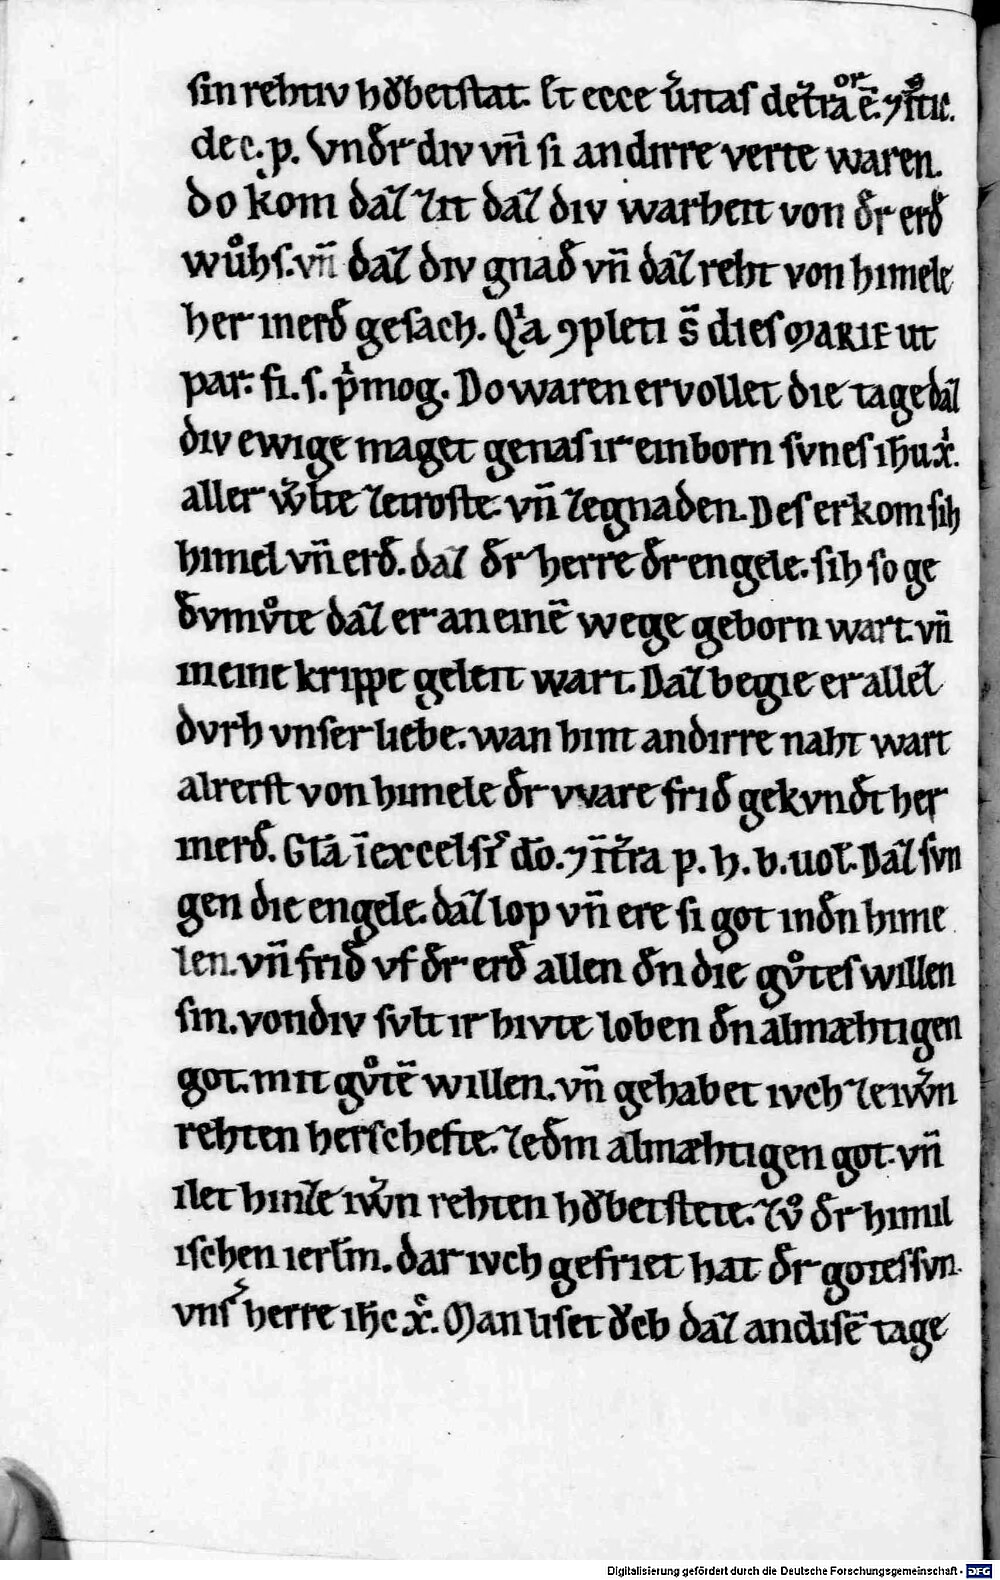 sin rehtiv hǒbetstat. Et ecce ůitas de t̉ra or̄ ē. ⁊ iustic.
de c. p. Vnd̄r div vn̄ si an dirre verte waren.
do kom daz zit daz div warheit von d̄r erd̄
wůhs. vn̄ daz div gnad̄ vn̄ daz reht von himele
her in erd̄ gesach. Qͥa ꝯpleti s̄ dies MARIE ut
par. fi. s. pͥmog. Do waren ervollet die tage daz
div ewige maget genas ir einborn svnes ihu xͥ.
aller w̉lte ze troste. vn̄ ze gnaden. Des erkom sih
himel vn̄ erd̄. daz d̄r herre d̄r engele. sih so ge
d̄vmůte daz er an einē wege geborn wart. vn̄
in eine krippe geleit wart. Daz begie er allez
dvrh vnser liebe. wan hint an dirre naht wart
alrerst von himele d̄r vvare frid̄ gekvnd̄t her
in erd̄. Glā ī excelsiͥ dō. ⁊ ī t̉ra p. h. b. uol. Daz svn
gen die engele. daz lop vn̄ ere si got in d̄n hime
len. vn̄ frid̄ vf d̄r erd̄ allen d̄n die gůtes willen
sin. von div svlt ir hivte loben d̄n almæhtigen
got. mit gůtē willen. vn̄ gehabet ivch ze iw̉n
rehten herschefte. ze d̄m almæhtigen got. vn̄
ilet hinze iw̉n rehten hǒbetstete. zů d̄r himil
ischen ierl̄m. dar ivch gefriet hat d̄r gotes svn.
vns̉ herre ihc xͨ. Man liset ǒch daz an disē tage